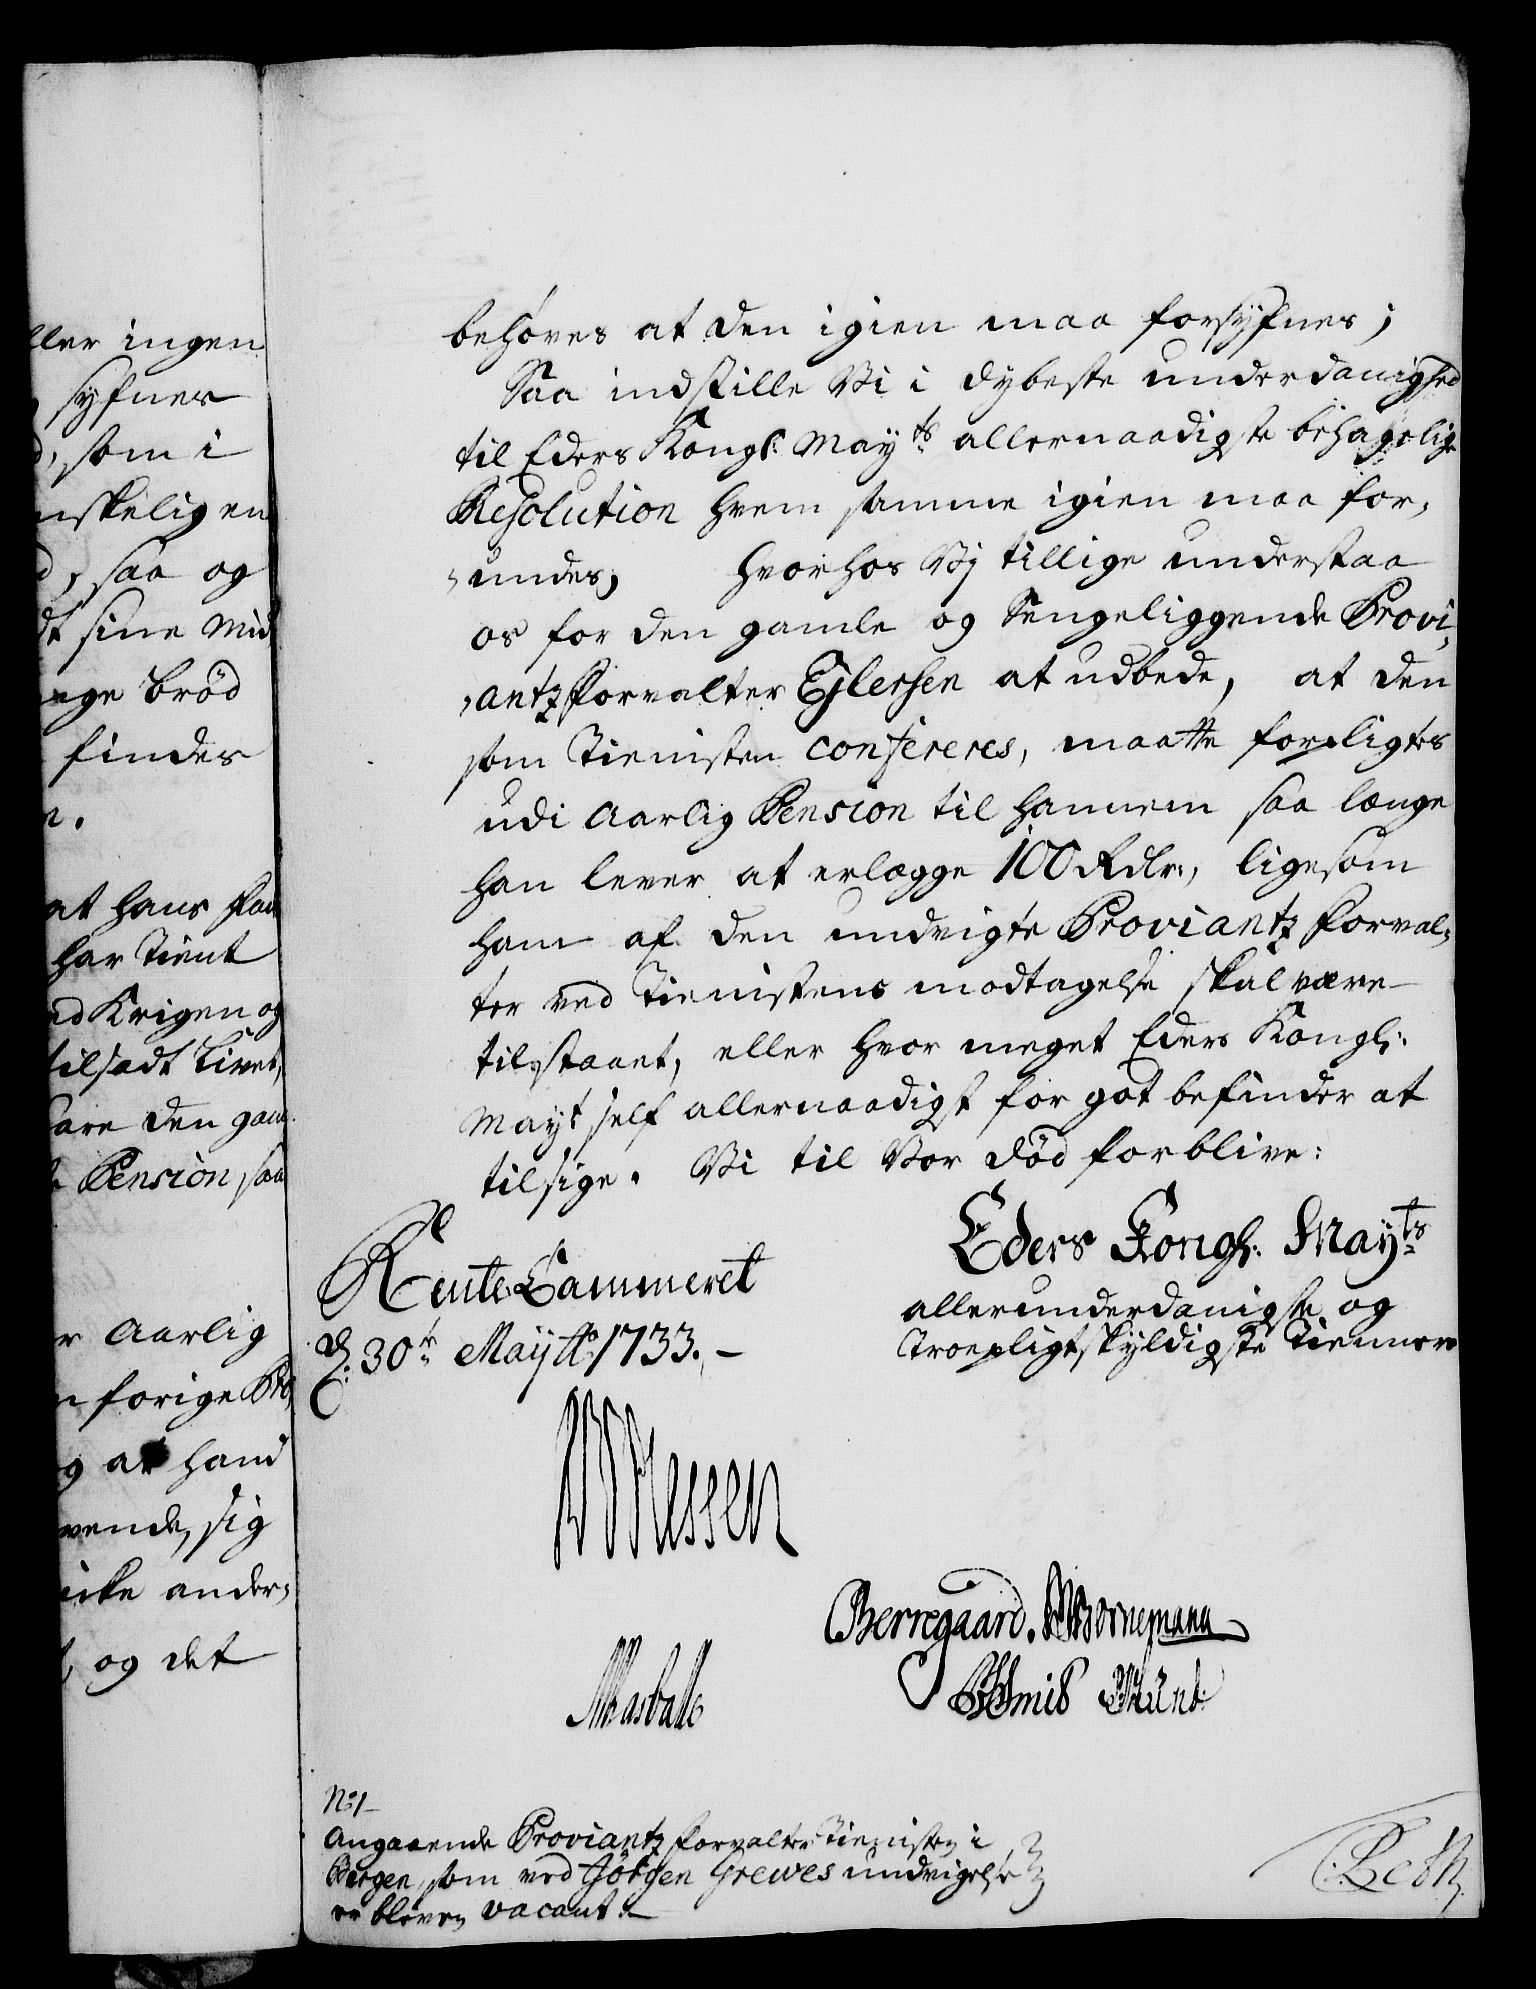 ller ingen
syfner
d, som i
nskelig en
d, saa og
dt sine Mid
nge brød
findes
n.
at hans fad
har tient
nd Krigen og
tilsadt livet,
bare den gam
Pension, saa
r Aarlig
n forige Pro
og at hand
vende, sig
icke ander,
, og det
behøves at den igien maa forsyfnes;
Saa indstille Vi i dybeste underdanighed
til Eders Kongl: Mayts allernaadigste behagelige
Resolution hvem samme igien maa for,
,undes; hvorhos Vi tillige understaa
os for den gamle og Sengeliggende Provi,
,antz forvalter Ejlersen at udbede, at den
som Tienisten confereres, maatte forpligtes
udi Aarlig Pension til hannem saa længe
han lever at erlægge 100 Rdlr:, ligesom
ham af den undvigte Proviantz forval,
ter ved Tienistens modtagelse skal være
tilstaaet, eller hvor meget Eders Kongl:
Mayt self allernaadigst for got befinder at
tilsige. Vi til Vor død forblive:
Eders Kongl: Mayts
Rente Cammeret
allerunderdanigste og
d: 30te Maij Ao 1733.
Troepligtskyldigste Tiennere
Berregaard. Bornemann
Nº 1
Angaaende Proviantz forvalter Tienisten i
Bergen, som ved Jörgen Grewes undvigelse
er bleven vacant.